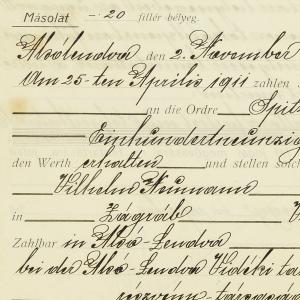 Másolat — 20 fillér bélyeg.
Alsólendva den 2. November
Am 25-ten Április 1911 zahlen
an die Ordre Spitz
Einhundertneunzig
den Werth erhalten und stellen solch
Vilhelm Neumann
in Zágráb
Zahlbar in Alsó-Lendva
bei der Alsó-Lendva Vidéki ta
részvény-társasá